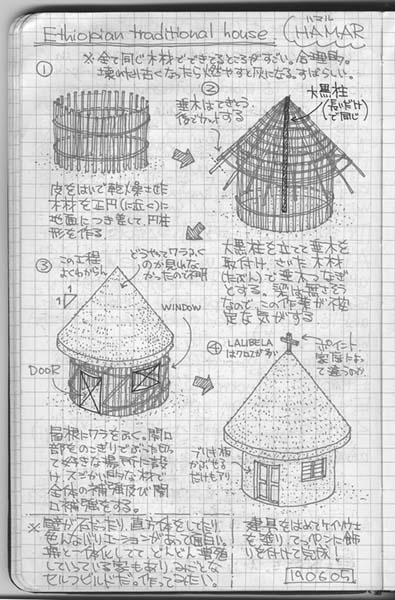 Ethiopian traditional house
ハマル
HAMAR
※全て同じ木材でできてるところがすごい。合理的。
壊れたり古くなったら燃やすと灰になる。すばらしい。
①
皮をはいで乾燥させた
木材を正円(に近く)に
地面につき差して、円柱
形を作る
②
垂木はてきとう
後でカットする
大黒柱
(長いだけ
で同じ)
大黒柱を立てて垂木を
取付け、さいた木材
(たぶん)で垂木つなぎ
とする。梁は無さそう
なので、この作業が
な気がする
③
この工程
よくわからん
どうやってワラふく
のか見れな
かったので不明
1
1
WINDOW
DOOR
屋根にワラをふく。開口
部をのこぎりでぶった切っ
て好きな場所に設
け、スジかい的な材で
全体の補強及び開
口補強をする。
④
LALIBELA
はクロスが多い
ポイント
家庭によっ
て違うのか
ブリキ板
かぶせる
だけもアリ
建具をはめてケイソウ土
を塗り、てっぺんに飾
りを付けて完成!
※壁が石だったり、直方体をしてたり
色んなバリエーションがあって面白い。
塀と一体化してて どんどん増殖
していっている家もあり、みごとな
セルフビルドだ。作ってみたい。
190605